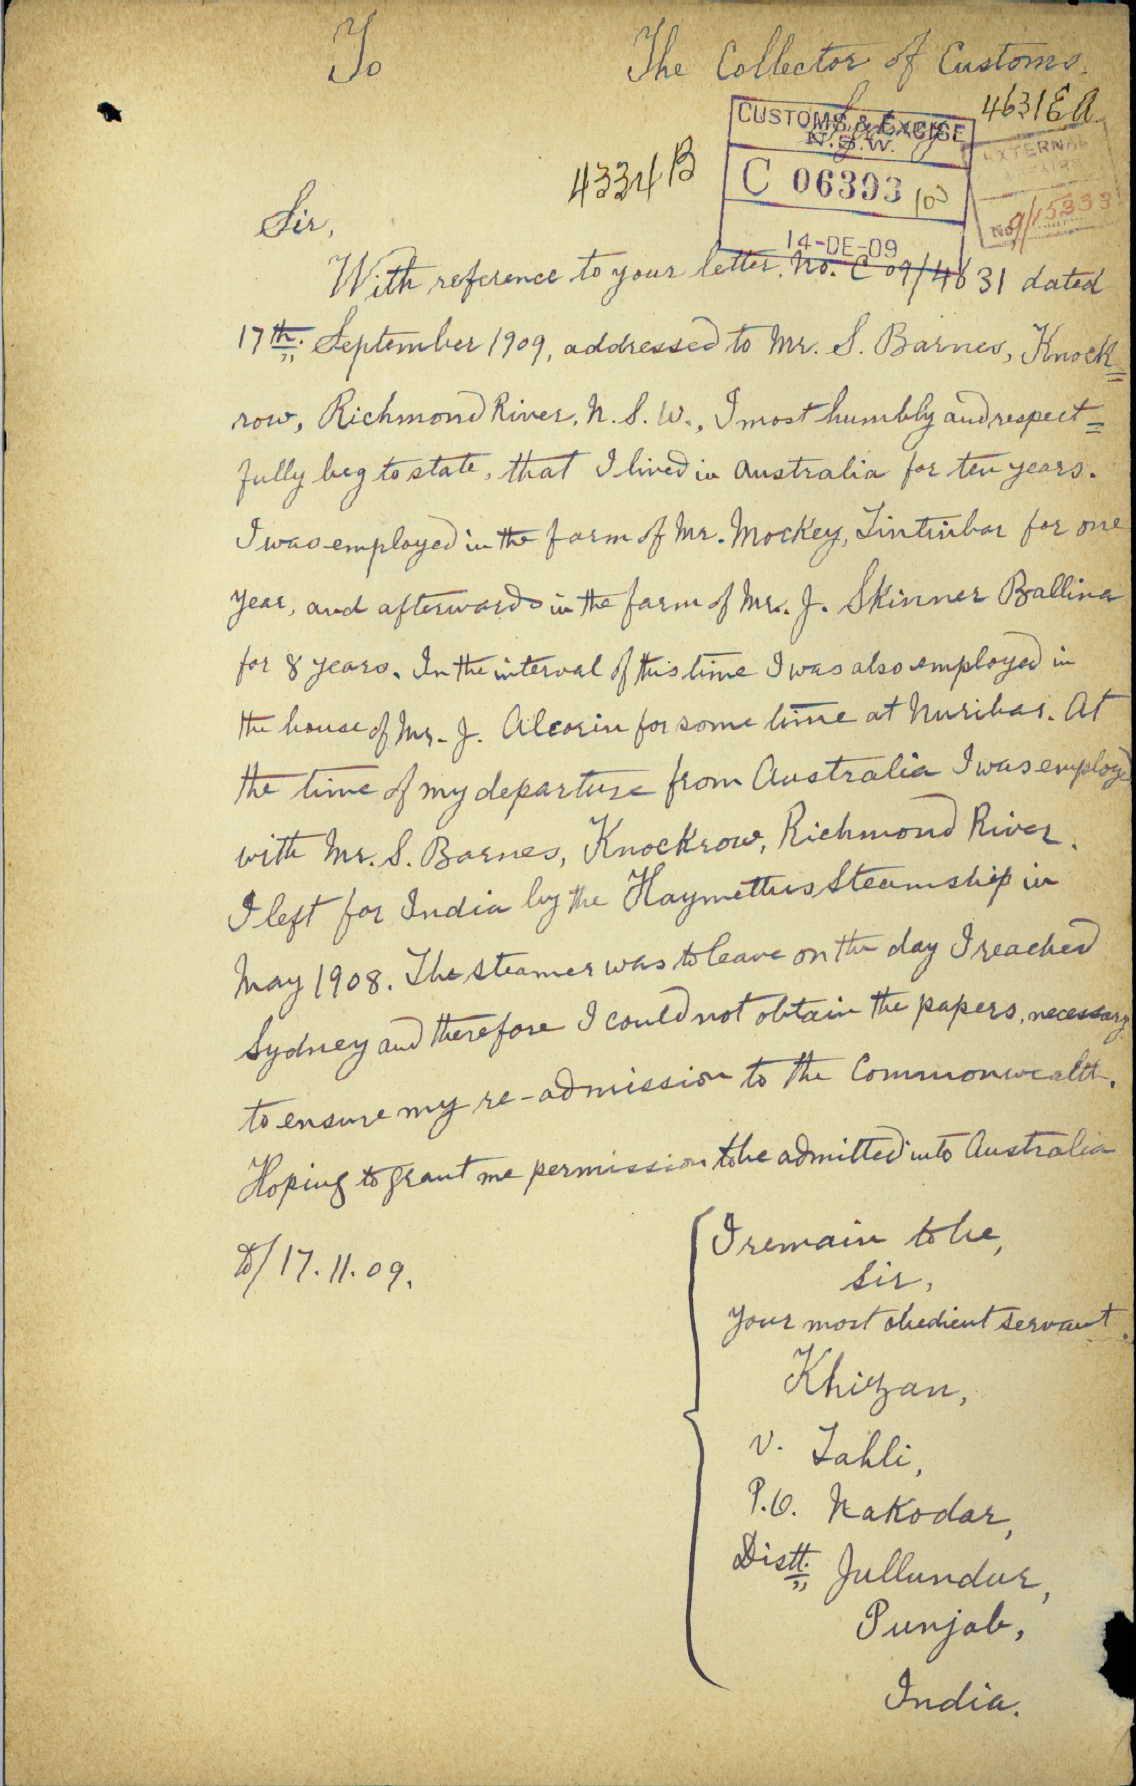 To The Collector of Customs.
Sydney
4631 E A
CUSTOMS & EXCISE
N.S.W.
4334 B
C 06393
14-DE-09
EXTERNAL
AFFAIRS
No. 9/15333
Sir,
With reference to your letter. No. C 09/4631 dated
17th. September 1909, addressed to Mr. S. Barnes, Knock=
row, Richmond River, N. S. W., I most humbly and respect=
fully beg to state, that I lived in Australia for ten years.
I was employed in the farm of Mr. Mockey, Tintinbar for one
year, and afterwards in the farm of Mr. J. Skinner Ballina
for 8 years. In the interval of this time I was also employed in
the house of Mr. J. Alcorin for some time at Nuribar. At
the time of my departure from Australia I was employed
with Mr. S. Barnes, Knockrow, Richmond River.
I left for India by the Haymettus Steamship in
May 1908. The steamer was to leave on the day I reached
Sydney and therefore I could not obtain the papers, necessary
to ensure my re-admission to the Commonwealth.
Hoping to grant me permission to be admitted into Australia
D/ 17.11.09.
I remain to be,
Sir,
Your most obedient servant.
Khizan,
V. Tahli,
P.O. Nakodar,
Distt. Jullundur,
Punjab,
India.